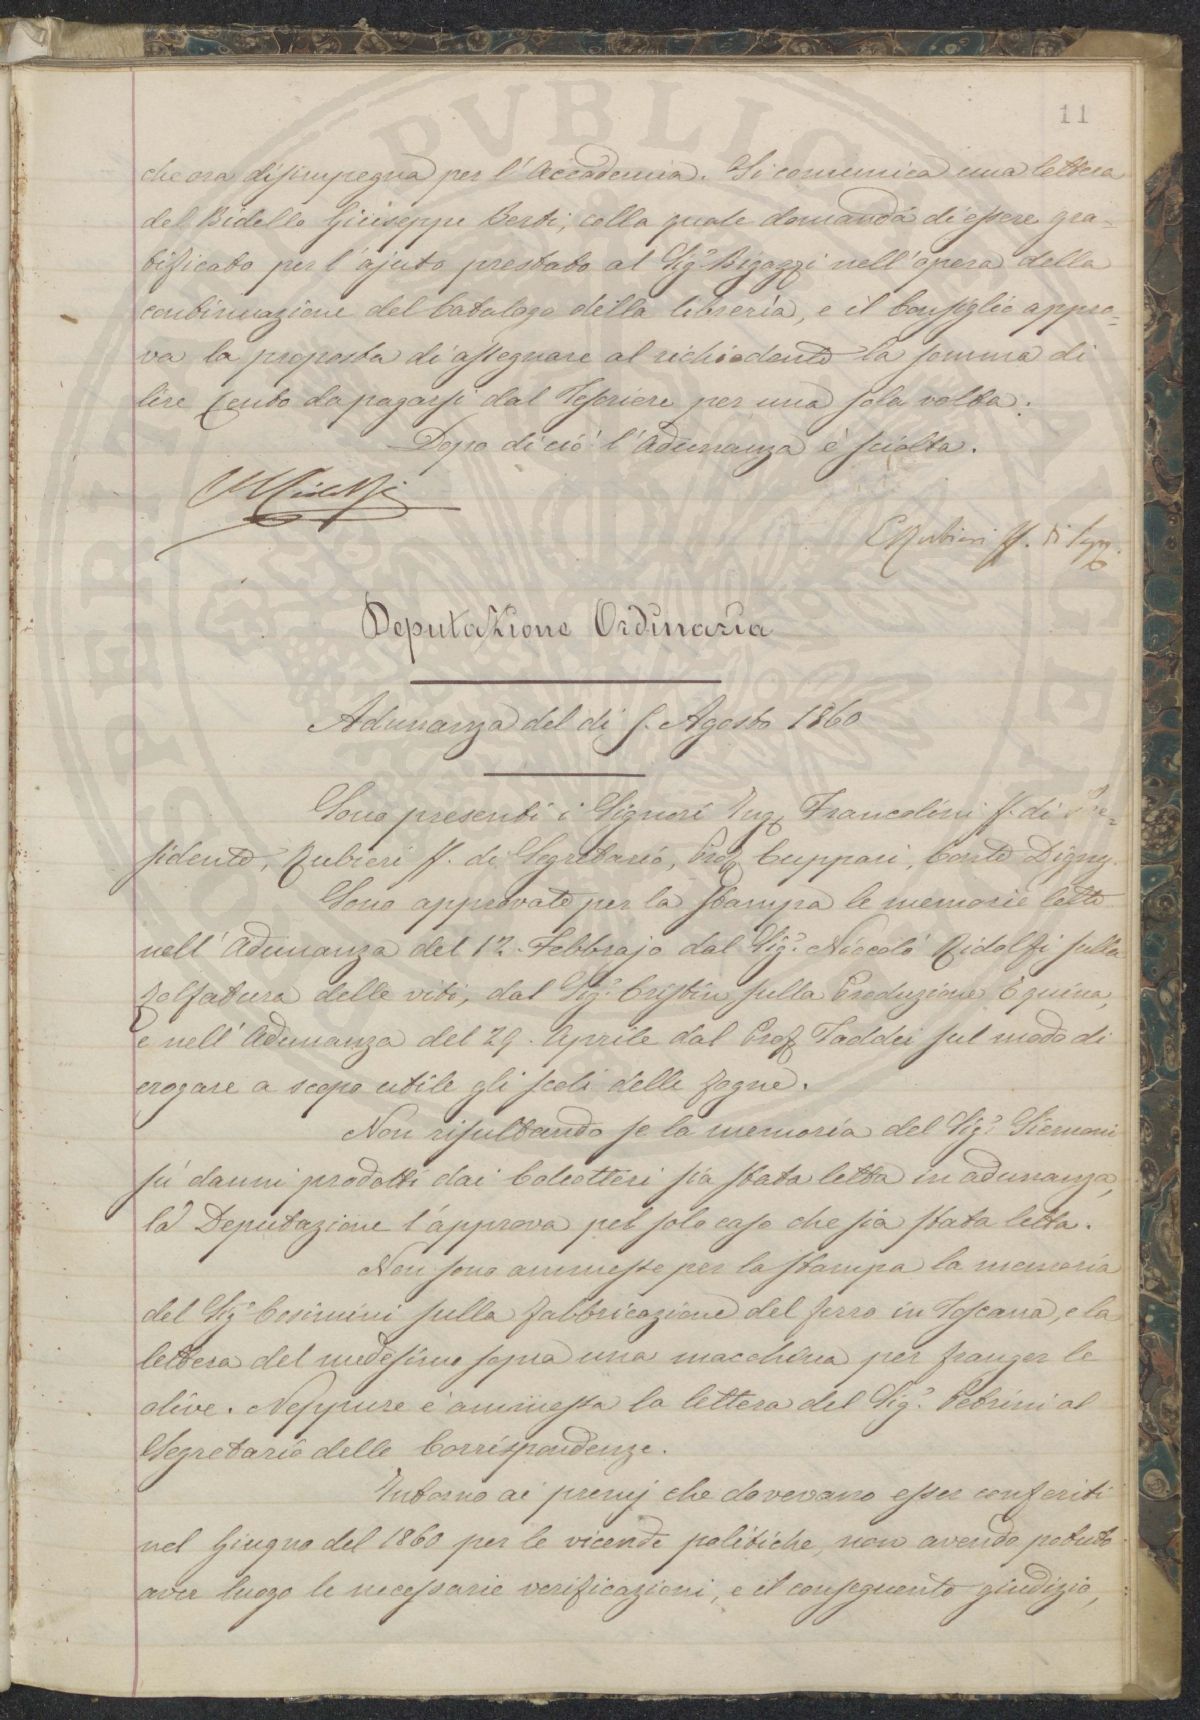 11
che ora disimpegna per l'Accademia. Si comunica una lettera
del Bidello Giuseppe Berti, colla quale domanda di essere gra=
tificato per l'ajuto prestato al Sig.r Bigazzi nell'opera della
continuazione del Catalogo della libreria, e il Consiglio appro=
va la proposta di assegnare al richiedente la somma di
lire cento da pagarsi dal Tesoriere per una sola volta.
Dopo di ciò l'Adunanza è sciolta.
Ridolfi
E Rubieri ff. di Seg.
Deputazione Ordinaria
Adunanza del dì 5. Agosto 1860
Sono presenti i Signori Ing. Francolini ff. di Pre=
sidente, Rubieri ff. di Segretario, Prof. Cuppari, Conte Digny.
Sono approvate per la stampa le memorie lette
nell'Adunanza del 12. Febbrajo dal Sig.r Niccolò Ridolfi sulla
zolfatura delle viti, dal Sig.r Cristin sulla Produzione Equina,
e nell'Adunanza del 29. Aprile dal Prof. Taddei sul modo di
erogare a scopo utile gli scoli delle fogne.
Non risultando se la memoria del Sig.r Siemoni
su' danni prodotti dai Coleotteri sia stata letta in adunanza,
la Deputazione l'approva pel solo caso che sia stata letta.
Non sono ammesse per la stampa la memoria
del Sig.r Cosimini sulla fabbricazione del ferro in Toscana, e la
lettera del medesimo sopra una macchina per franger le
olive. Neppure è ammessa la lettera del Sig.r Petrini al
Segretario delle Corrispondenze.
Intorno ai premj che dovevano esser conferiti
nel Giugno del 1860 per le vicende politiche, non avendo potuto
aver luogo le necessarie verificazioni, e il conseguente giudizio,